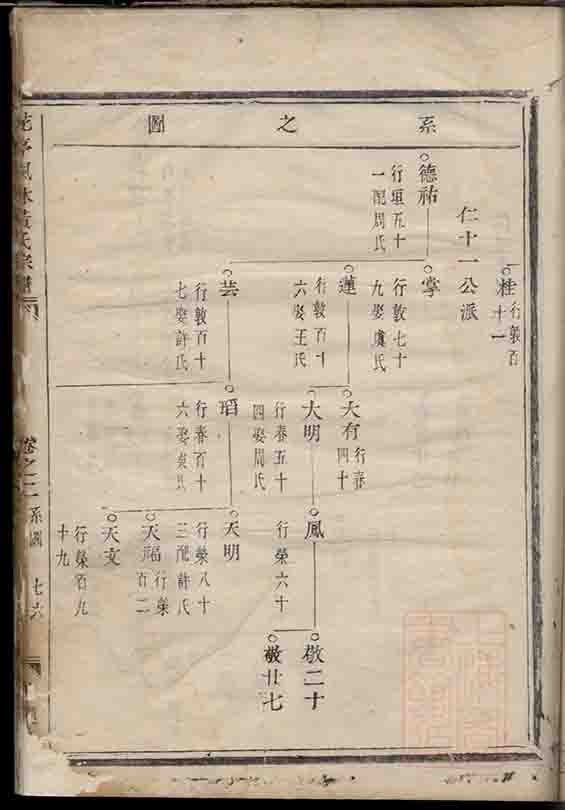 系之圖
桂
行敦百
十一
仁十一公派
德祐
行垣五十
一配周氏
掌
行敦七十
九娶虞氏
蓮
行敦百十
六娶王氏
芸
行敦百十
七娶許氏
大有
行春
四十
大明
行春五十
四娶周氏
瑫
行春百十
六娶吳氏
鳳
行榮六十
天明
行榮八十
三配許氏
天福
行榮
百二
天文
行榮百九
十九
敬二十
敬廿七
黃氏宗譜
卷之二
系圖
七六